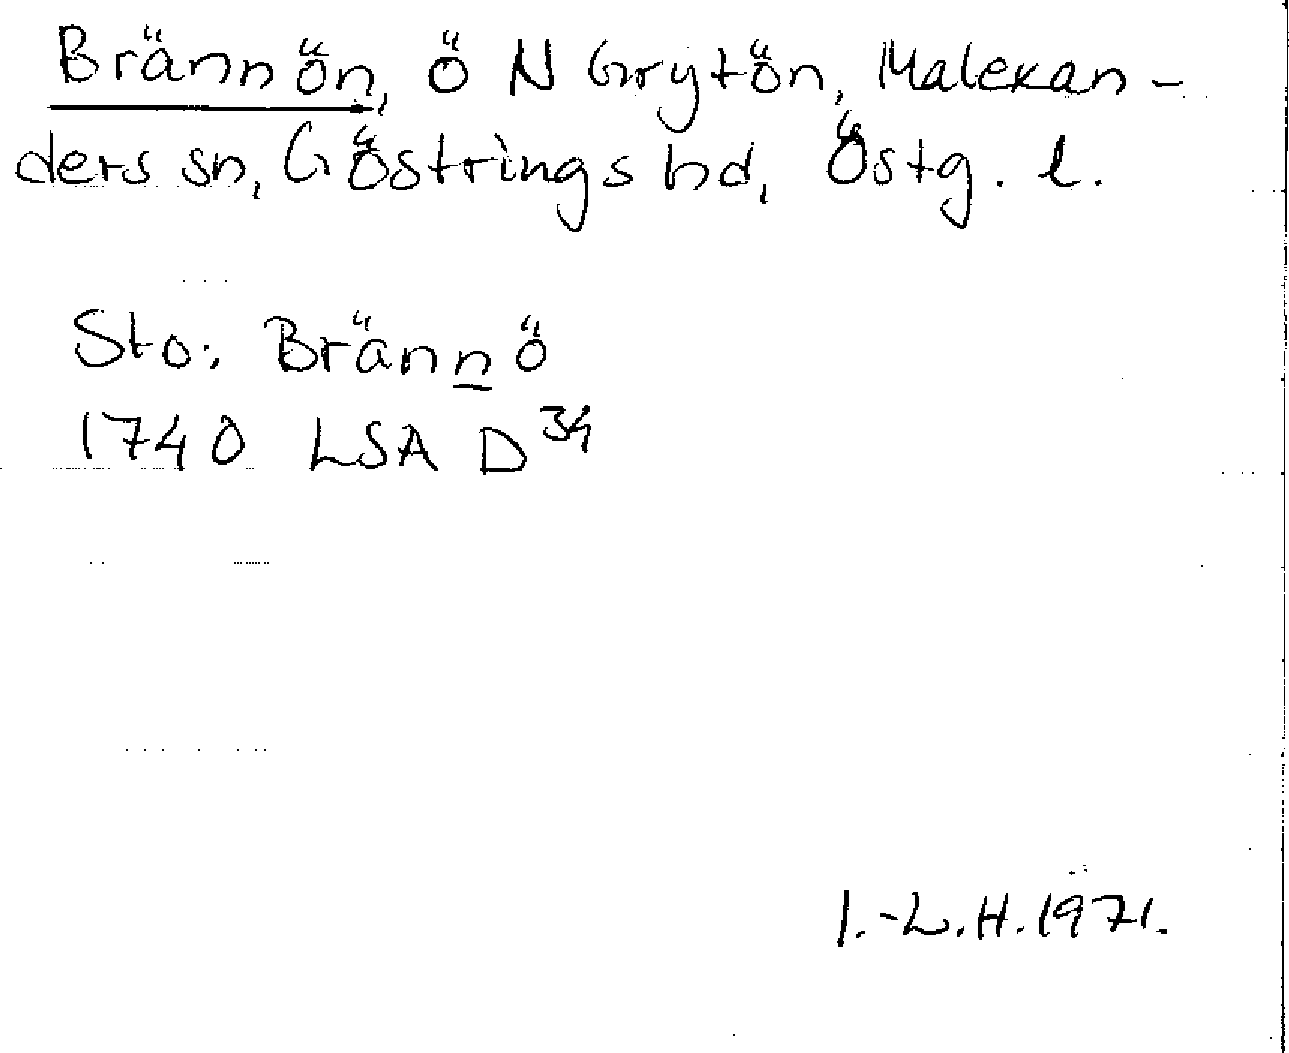 Brännön, Ö N Grytön, Malexan-
ders sn, Göstrings hd, Östg. l.
Sto: Brännö
1740 LSA D34
I.-L.H. 1971.